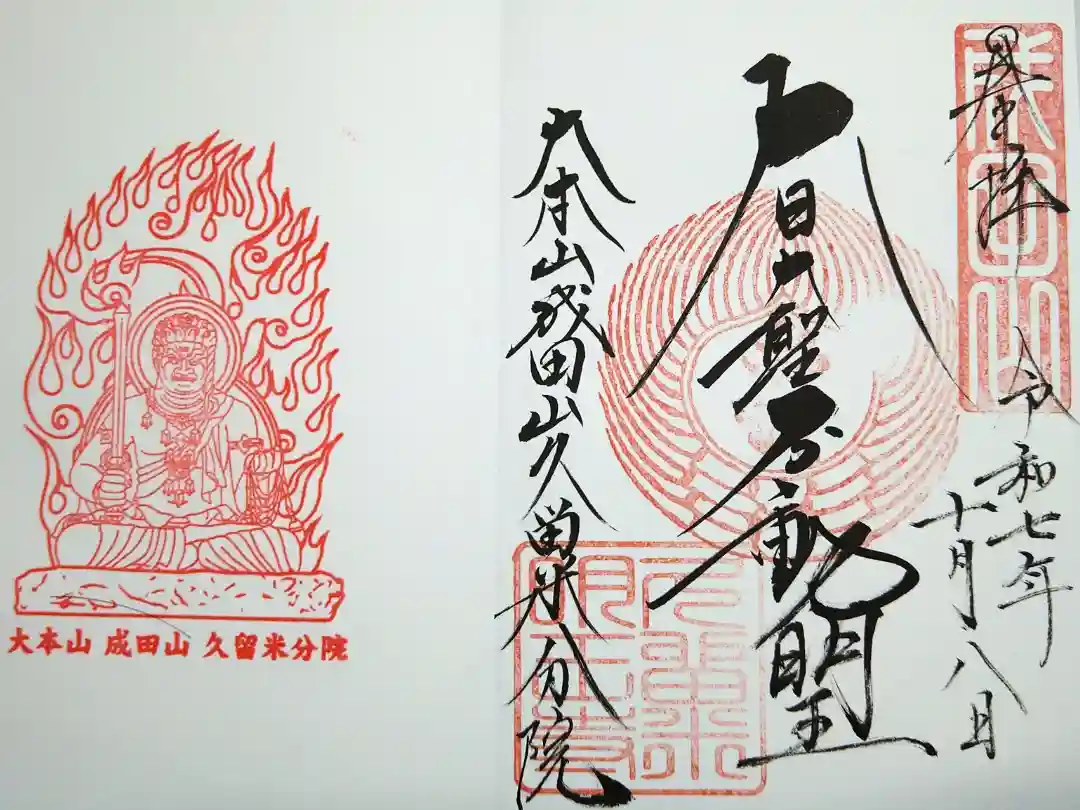 成田山
拝
令和七年
十月八日
大日大聖不動明王
大本山成田山久留米分院
久留米
明王寺
大本山 成田山 久留米分院